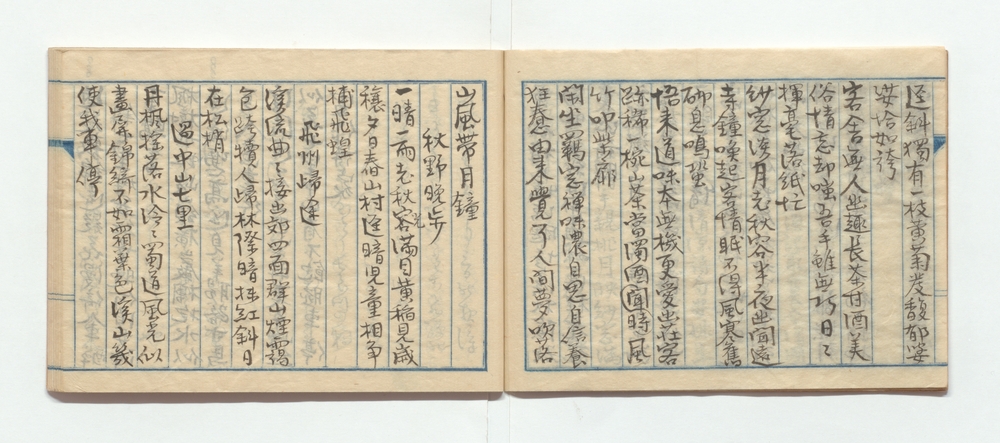 逕斜獨有一枝黄菊发馥郁
客舎無人幽趣長茶甘酒美
俗情忘却嗤吾手雖無巧日々
揮毫落紙忙
紗窓済月光秋容半夜幽聞遠
寺鐘喚起客情眠不得風寒
砌息鳴蛩
悟来道味本無機更愛幽莊客
跡稀一椀山茶當濁酒聞時風
竹叩柴扉
閑坐羈窓禪味濃自思自信養
狂惷由来覺了人間夢吹落
山風帶月鐘
秋野晩歩
一晴一雨老秋容滿目黄稲見歳
穰夕日春山村逕暗児童相争
捕飛蝗
飛州歸途
溪流曲々接出郊四面群山煙靄
包跨犢人歸林際暗抹紅斜日
在松梢
過中山七里
丹楓捴落水冷々蜀道風光似
畫屏錦繍不如霜葉色溪山幾
使我車停